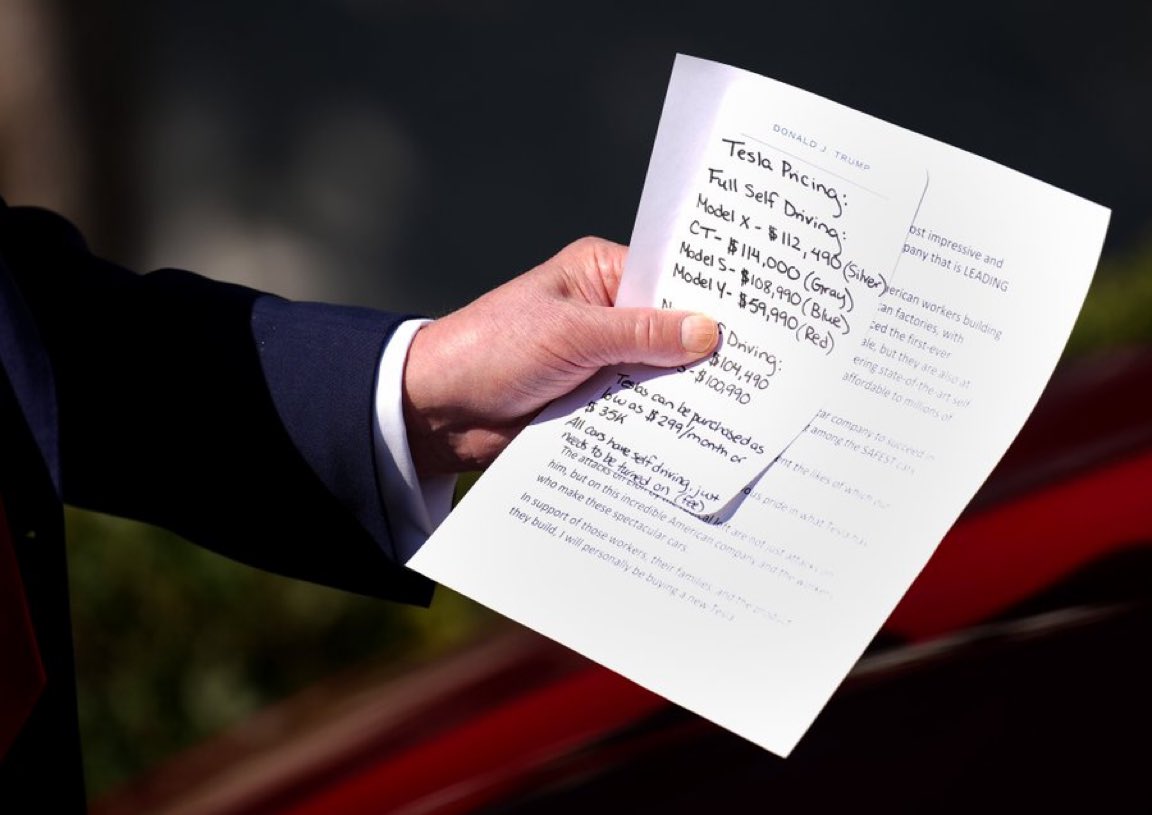 DONALD J. TRUMP
Tesla Pricing:
Full Self Driving:
Model X - $112,490 (Silver)
CT- $114,000 (Gray)
Model S- $108,990 (Blue)
Model Y- $59,990 (Red)
Driving:
$104,490
$100,990
Teslas can be purchased as
low as $299/month or
$35K
All cars have self driving, just
needs to be turned on (fee)
impressive and
that is LEADING
workers building
factories, with
the first-ever
but they are also at
state-of-the-art self
affordable to millions of
company to succeed in
among the SAFEST cars
the likes of which
pride in what Tesla has
The attacks are not just attacks on
him, but on this incredible American company and the workers
who make these spectacular cars.
In support of those workers, their families, and the product
they build, I will personally be buying a new Tesla